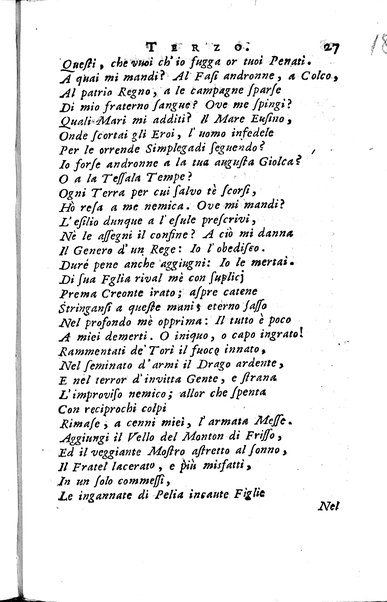 TERZO. 27
18
Queſti, che vuoi ch' io fugga or tuoi Penati.
A quai mi mandi? Al Faſi andronne, a Colco,
Al patrio Regno, a le campagne ſparſe
Di mio fraterno ſangue? Ove me ſpingi?
Quali Mari mi additi? Il Mare Euſino,
Onde ſcortai gli Eroi, l' uomo infedele
Per le orrende Simplegadi ſeguendo?
Io forſe andronne a la tua anguſta Giolca?
O a la Teſſala Tempe?
Ogni Terra per cui ſalvo tè ſcorſi,
Hò reſa a me nemica. Ove mi mandi?
L' eſilio dunque a l' eſule preſcrivi,
Nè le aſſegni il confine? A ciò mi danna
Il Genero d' un Rege: Io l' obediſco.
Duré pene anche aggiugni: Io le mertai.
Di ſua Fglia rival mè con ſuplicj
Prema Creonte irato; aſpre catene
Stringanſi a queſte mani; eterno ſaſſo
Nel profondo mè opprima: Il tutto è poco
A miei demerti. O iniquo, o capo ingrato!
Rammentati de' Tori il fuoco innato,
Nel ſeminato d' armi il Drago ardente,
E nel terror d' invitta Gente, e ſtrana
L' improviſo nemico; allor che ſpenta
Con reciprochi colpi
Rimaſe, a cenni miei, l' armata Meſſe.
Aggiungi il Vello del Monton di Friſſo,
Ed il veggiante Moſtro aſtretto al ſonno,
Il Fratel lacerato, e più misfatti,
In un ſolo commeſſi,
Le ingannate di Pelia incaute Figlie
Nel